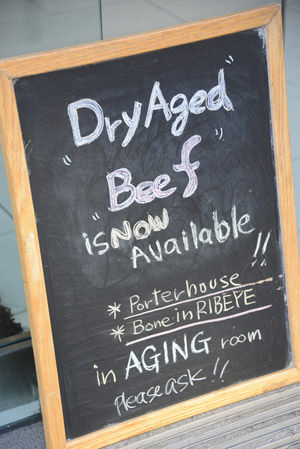 Dry Aged
"Beef"
"is NOW
Available!!
* Porterhouse
* Bone in RIBEYE
in AGING room
please ask!!